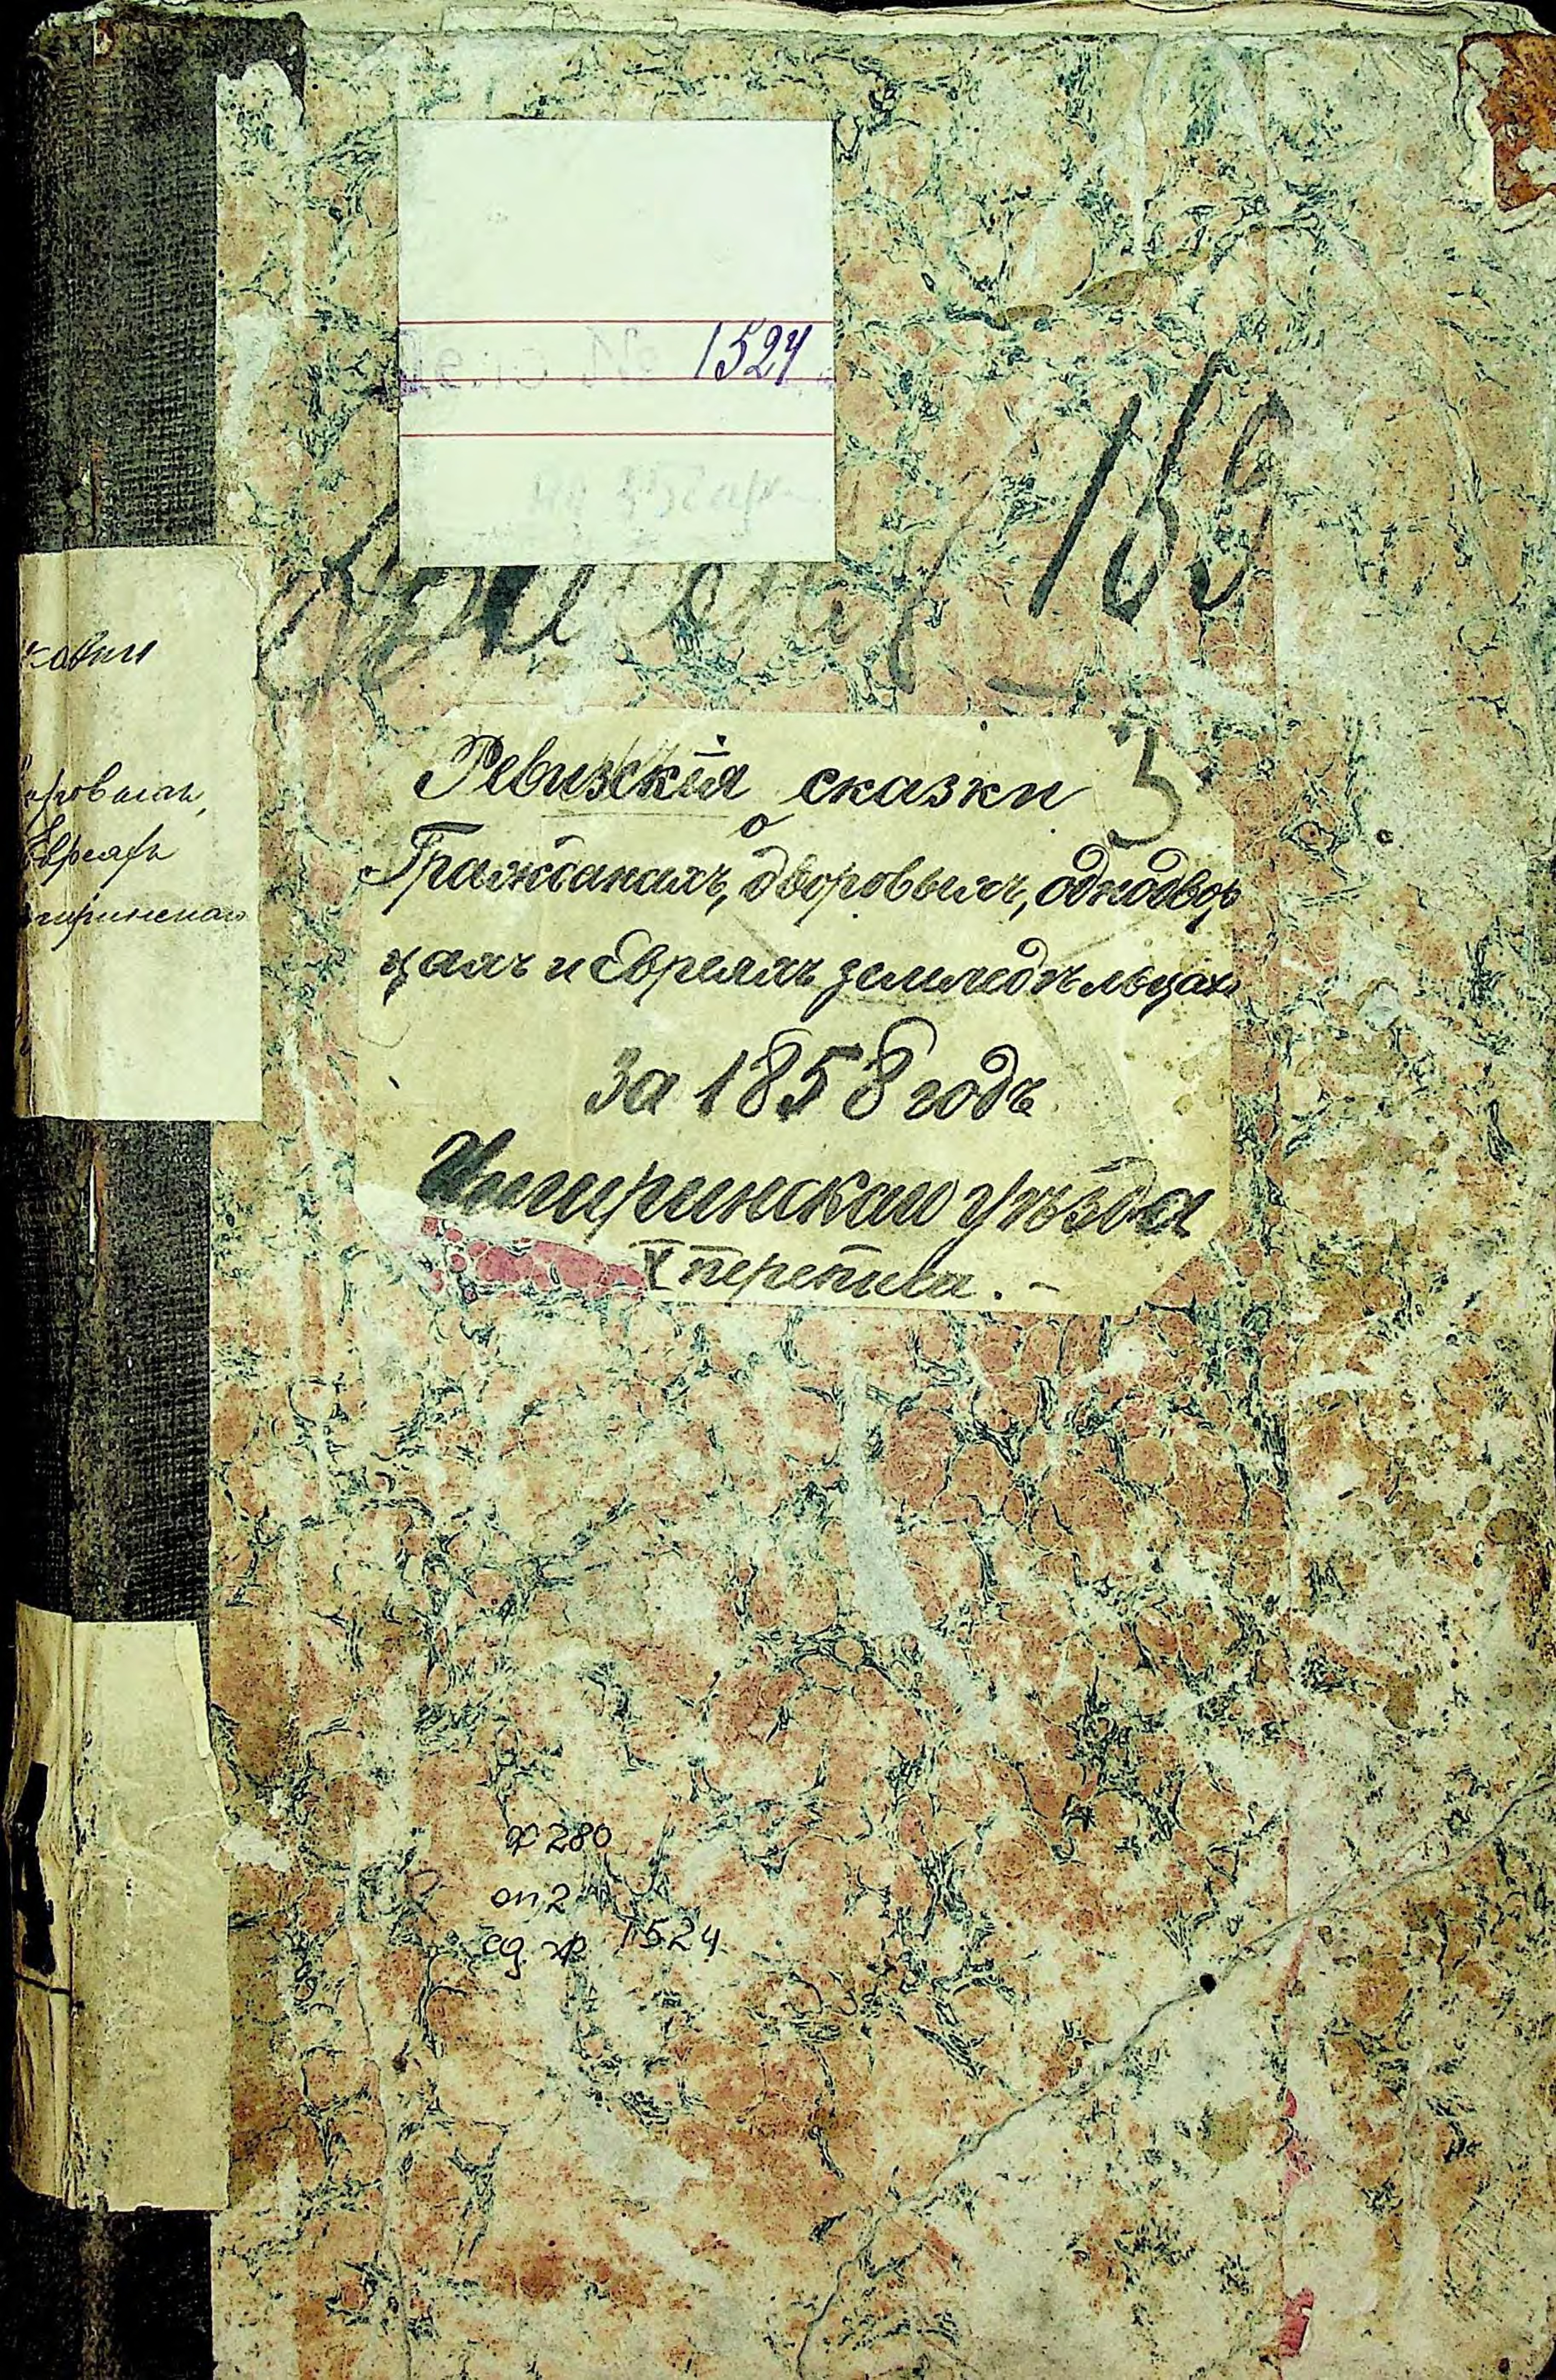 1524
169
Ревизскія сказки
5
о
Гражданахъ, дворовыхъ, однодвор
цахъ и Евреяхъ земледѣльцахъ
за 1858 годъ
Чигиринскаго уѣзда
X перепись. -
ровыхъ,
Евреяхъ
гиринскаго
ф 280
оп 2
ед. хр 1524